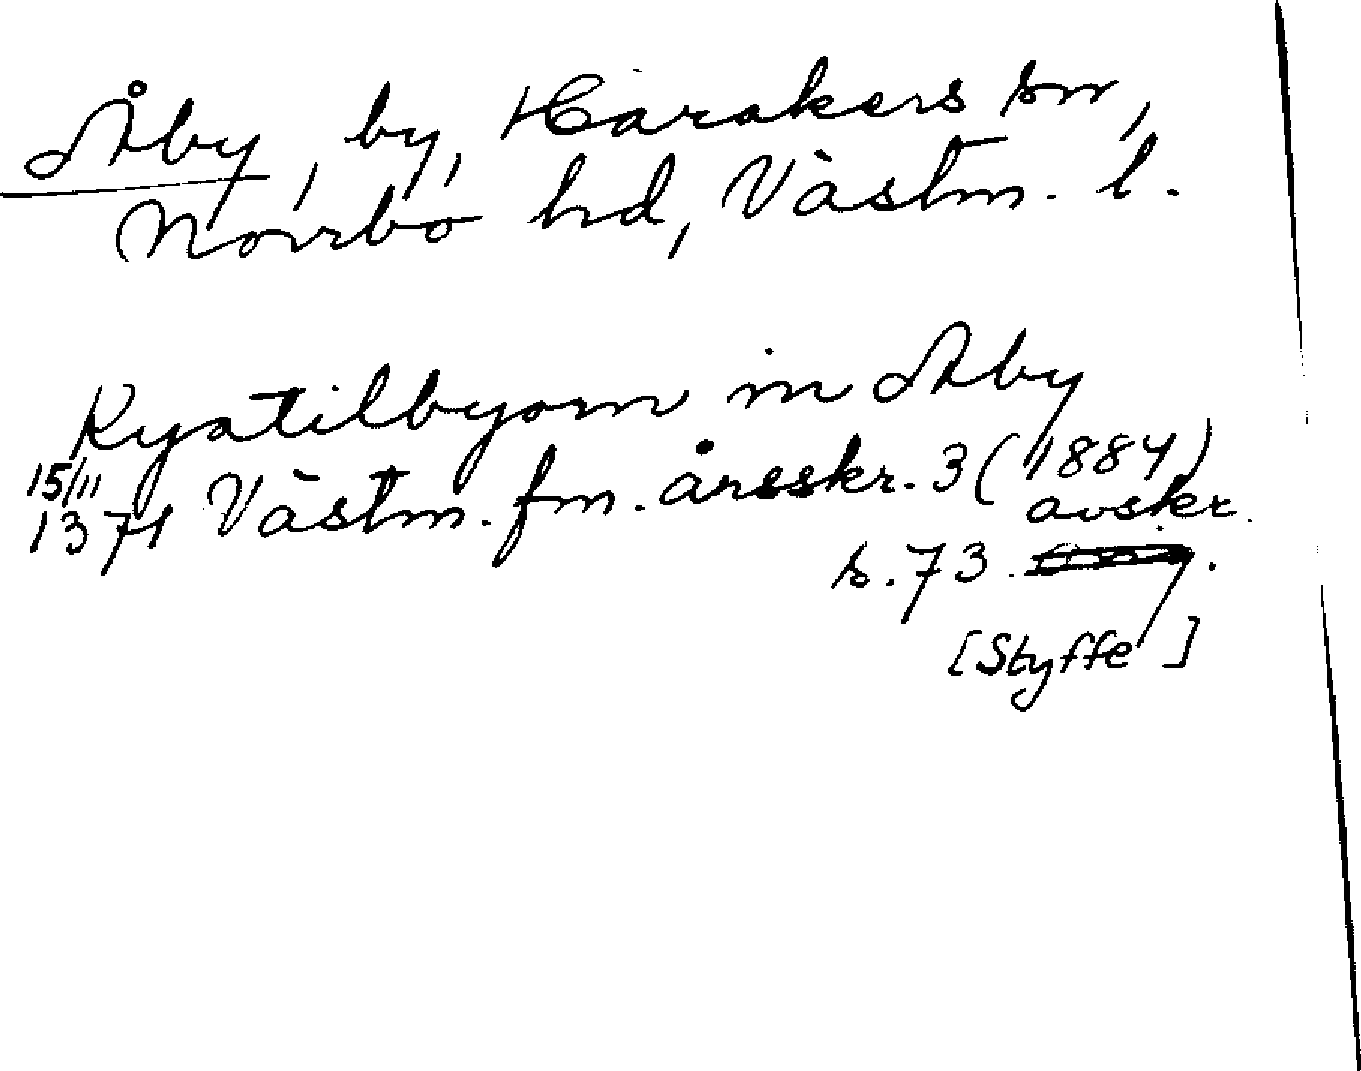 Åby, by, Harakers sn,
Norrbo hd, Västm. l.
Kystilbyom in Aby
15/11 1371 Västm. fm. årsskr. 3 (1884)
avskr.
s. 73.
[Styffe]